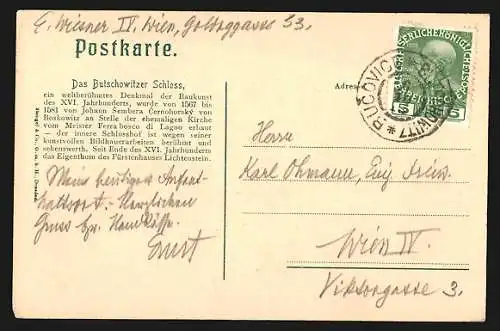 E. Wiesner IV. Wien, Goldeggasse 33.
Postkarte.
Das Butschowitzer Schloss,
ein weltberühmtes Denkmal der Baukunst
des XVI. Jahrhunderts, wurde von 1567 bis
1581 von Johann Šembera Černohorský von
Boskowitz an Stelle der ehemaligen Kirche
vom Meister Ferrabosco di Lagno erbaut
- der innere Schlosshof ist wegen seiner
kunstvollen Bildhauerarbeiten berühmt und
sehenswerth. Seit Ende des XVI. Jahrhunderts
das Eigenthum des Fürstenhauses Liechtenstein.
Stengel & Co., G. m. b. H., Dresden
Mein heutiger Aufent-
haltsort. Herzlichen
Gruss
Ernst
Adres
5
5
BUČOVIC
Herrn
Karl Ohmann,
Wien IV.
Viktorgasse 3.